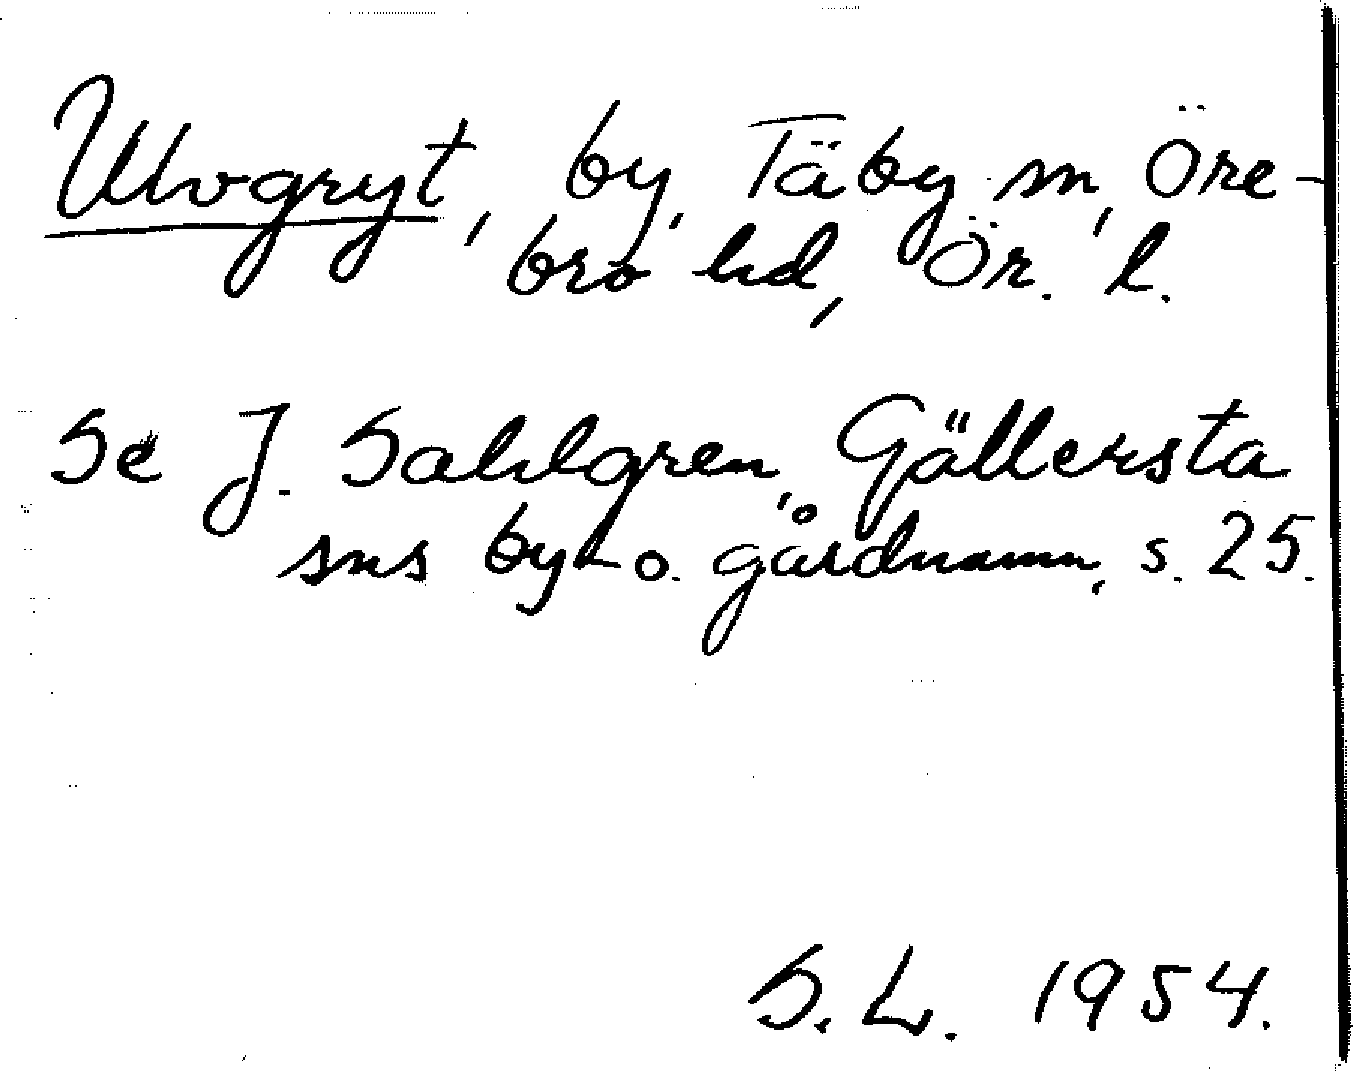 Ulvgryt, by, Täby sn, Öre-
bro hd, Ör. l.
Se J. Sahlgren, Gällersta
sns by- o. gårdnamn, s. 25.
S. L. 1954.